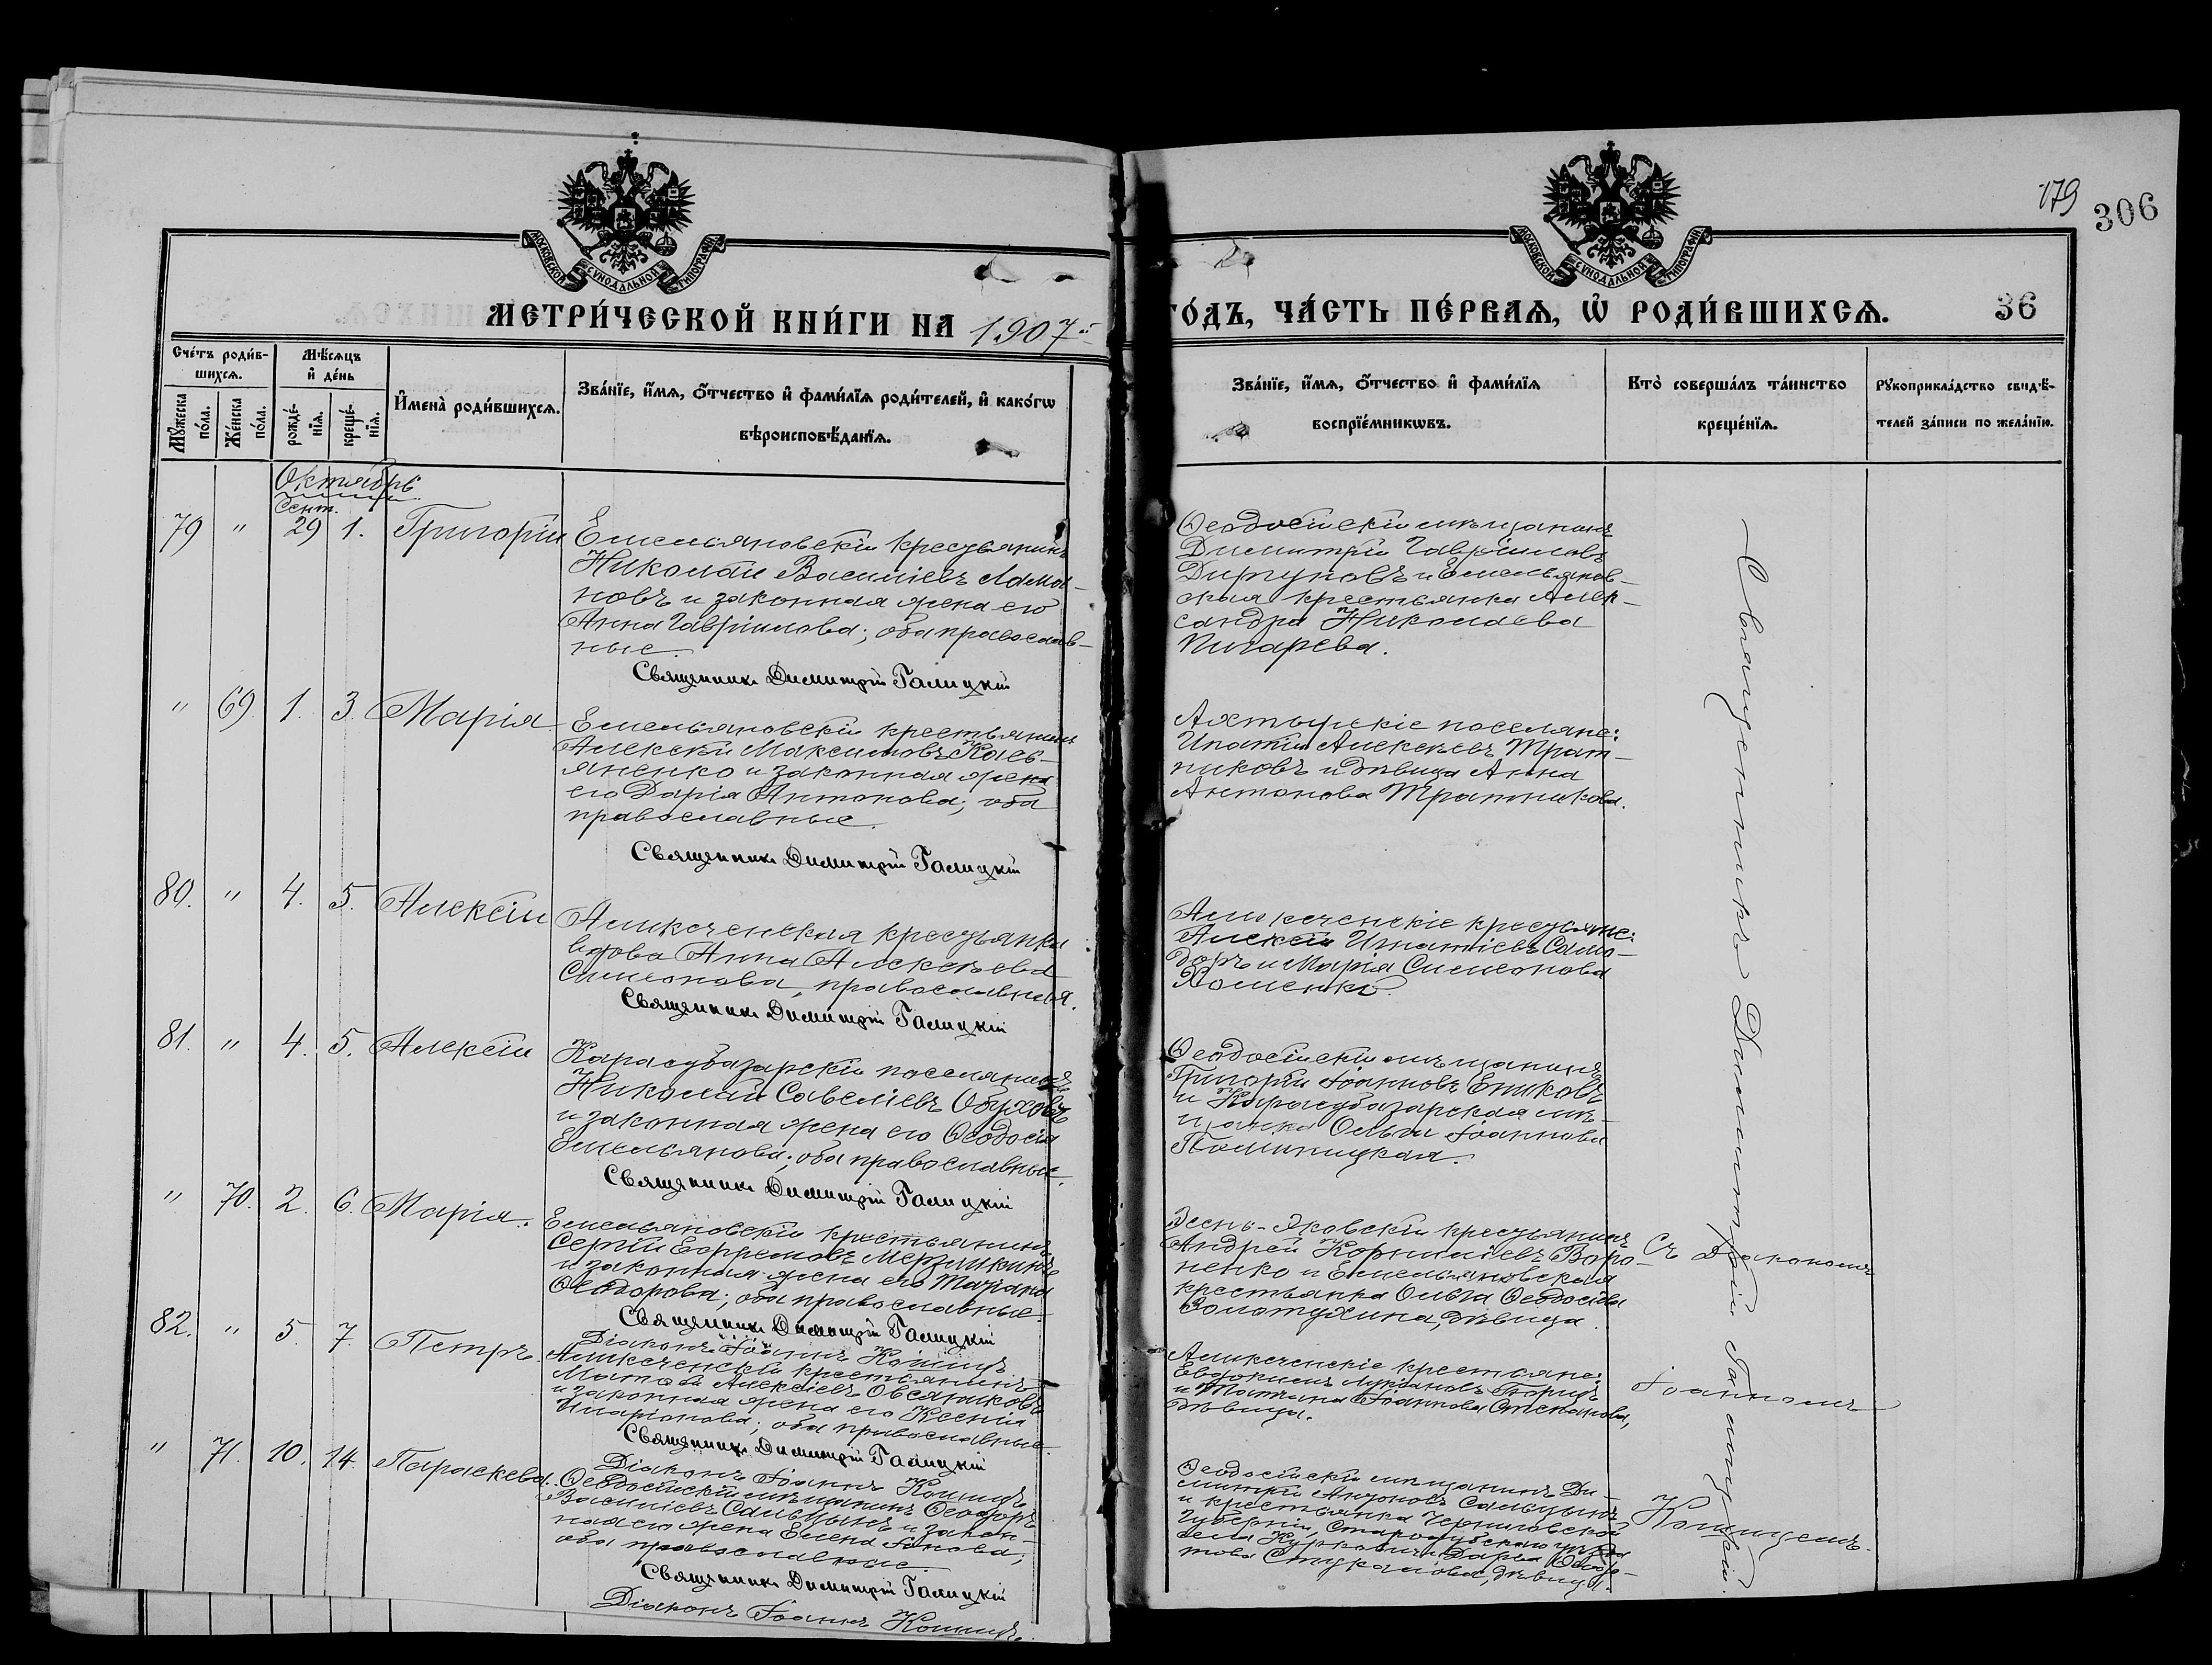 179
306
МОСКОВСКОЙ СѴНОДАЛЬНОЙ ТИПОГРАФІИ
МОСКОВСКОЙ СѴНОДАЛЬНОЙ ТИПОГРАФІИ
МЕТРИ́ЧЕСКОЙ КНИ́ГИ НА 1907й
ГО́ДЪ, ЧА́СТЬ ПЕ́РВАѦ, Ѡ҆ РОДИ́ВШИХСѦ.
36
Сче́тъ роди́в-
шихсѧ.
Мѣ́сѧцъ
и҆ де́нь
Мꙋ́жеска
по́ла.
Же́нска
по́ла.
рожде́-
нїѧ.
креще́-
нїѧ.
И҆мена̀ роди́вшихсѧ.
Зва́нїе, и҆́мѧ, ѻ҆́тчество и҆ фами́лїѧ роди́телей, и҆ како́гѡ
вѣроисповѣ́данїѧ.
Зва́нїе, и҆́мѧ, ѻ҆́тчество и҆ фами́лїѧ
воспрїе́мникѡвъ.
Кто̀ соверша́лъ та́инство
креще́нїѧ.
Рꙋкоприкла́дство свидѣ́-
телей за́писи по жела́нїю.
Октябрь
Сент.
79 " 29 1. Григорій
Емельяновскій крестьянинъ
Николай Василіевъ Ламо-
новъ и законная жена его
Анна Гавріилова; оба православ-
ные.
Священникъ Димитрій Галицкій
Ѳеодосійскій мѣщанинъ
Димитрій Гавріиловъ
и Емельянов-
ская крестьянка Алек-
сандра Николаева
Пигарева.
" 69. 1. 3. Марія
Емельяновскій крестьянинъ
Алексѣй Максимовъ Кась-
яненко и законная жена
его Дарія Антонова; оба
православные.
Священникъ Димитрій Галицкій
Ахтырскіе поселяне:
Ипатій Алексѣевъ Трат-
никовъ и дѣвица Анна
Антонова Тратникова.
80. " 4. 5. Алексій
Аликеченская крестьянка
вдова Анна Алексѣева
Симеонова, православная.
Священникъ Димитрій Галицкій
Аликеченскіе крестьяне:
Алексій Игнатіевъ Само-
даръ и Марія Симеонова
Хоменко.
81. " 4. 5. Алексій
Карасубазарскій поселянинъ
Николай Савеліевъ Обуховъ
и законная жена его Ѳеодосія
Емельянова; оба православные.
Священникъ Димитрій Галицкій
Ѳеодосійскій мѣщанинъ
Григорій Іоанновъ Ениковъ
и Карасубазарская мѣ-
щанка Ольга Іоаннова
" 70. 2. 6. Марія.
Емельяновскій крестьянинъ
Сергій Ефремовъ Мерзликинъ
и законная жена его Татіана
Ѳеодорова; оба православные.
Священникъ Димитрій Галицкій
Діаконъ Іоаннъ Кошицъ
Андрей Корниліевъ Воро-
ненко и Емельяновская
крестьянка Ольга Ѳеодосіева
Золотухина, дѣвица.
82. " 5. 7. Петръ.
Аликеченскій крестьянинъ
Матѳей Алексіевъ Овсяниковъ
и законная жена его Ксенія
Иларіонова; оба православные.
Священникъ Димитрій Галицкій
Діаконъ Іоаннъ Кошицъ
Аликеченскіе крестьяне:
Евдокимъ Лукіановъ
и Татіана Іоаннова Степанова,
дѣвица.
" 71. 10. 14. Параскева.
Ѳеодосійскій мѣщанинъ Ѳеодоръ
Василіевъ Сальцынъ и закон-
ная его жена Елена Іонова;
оба православные
Священникъ Димитрій Галицкій
Діаконъ Іоаннъ Кошицъ
Ѳеодосійскій мѣщанинъ Ди-
митрій Сальцынъ
и крестьянка Черниговской
губерніи, Стародубскаго уѣзда
села Курковичи Дарья Ѳеодо-
това Стукалова, дѣвица.
Священникъ Димитрій Галицкій.
Съ Діакономъ
Іоанномъ
Кошицемъ.